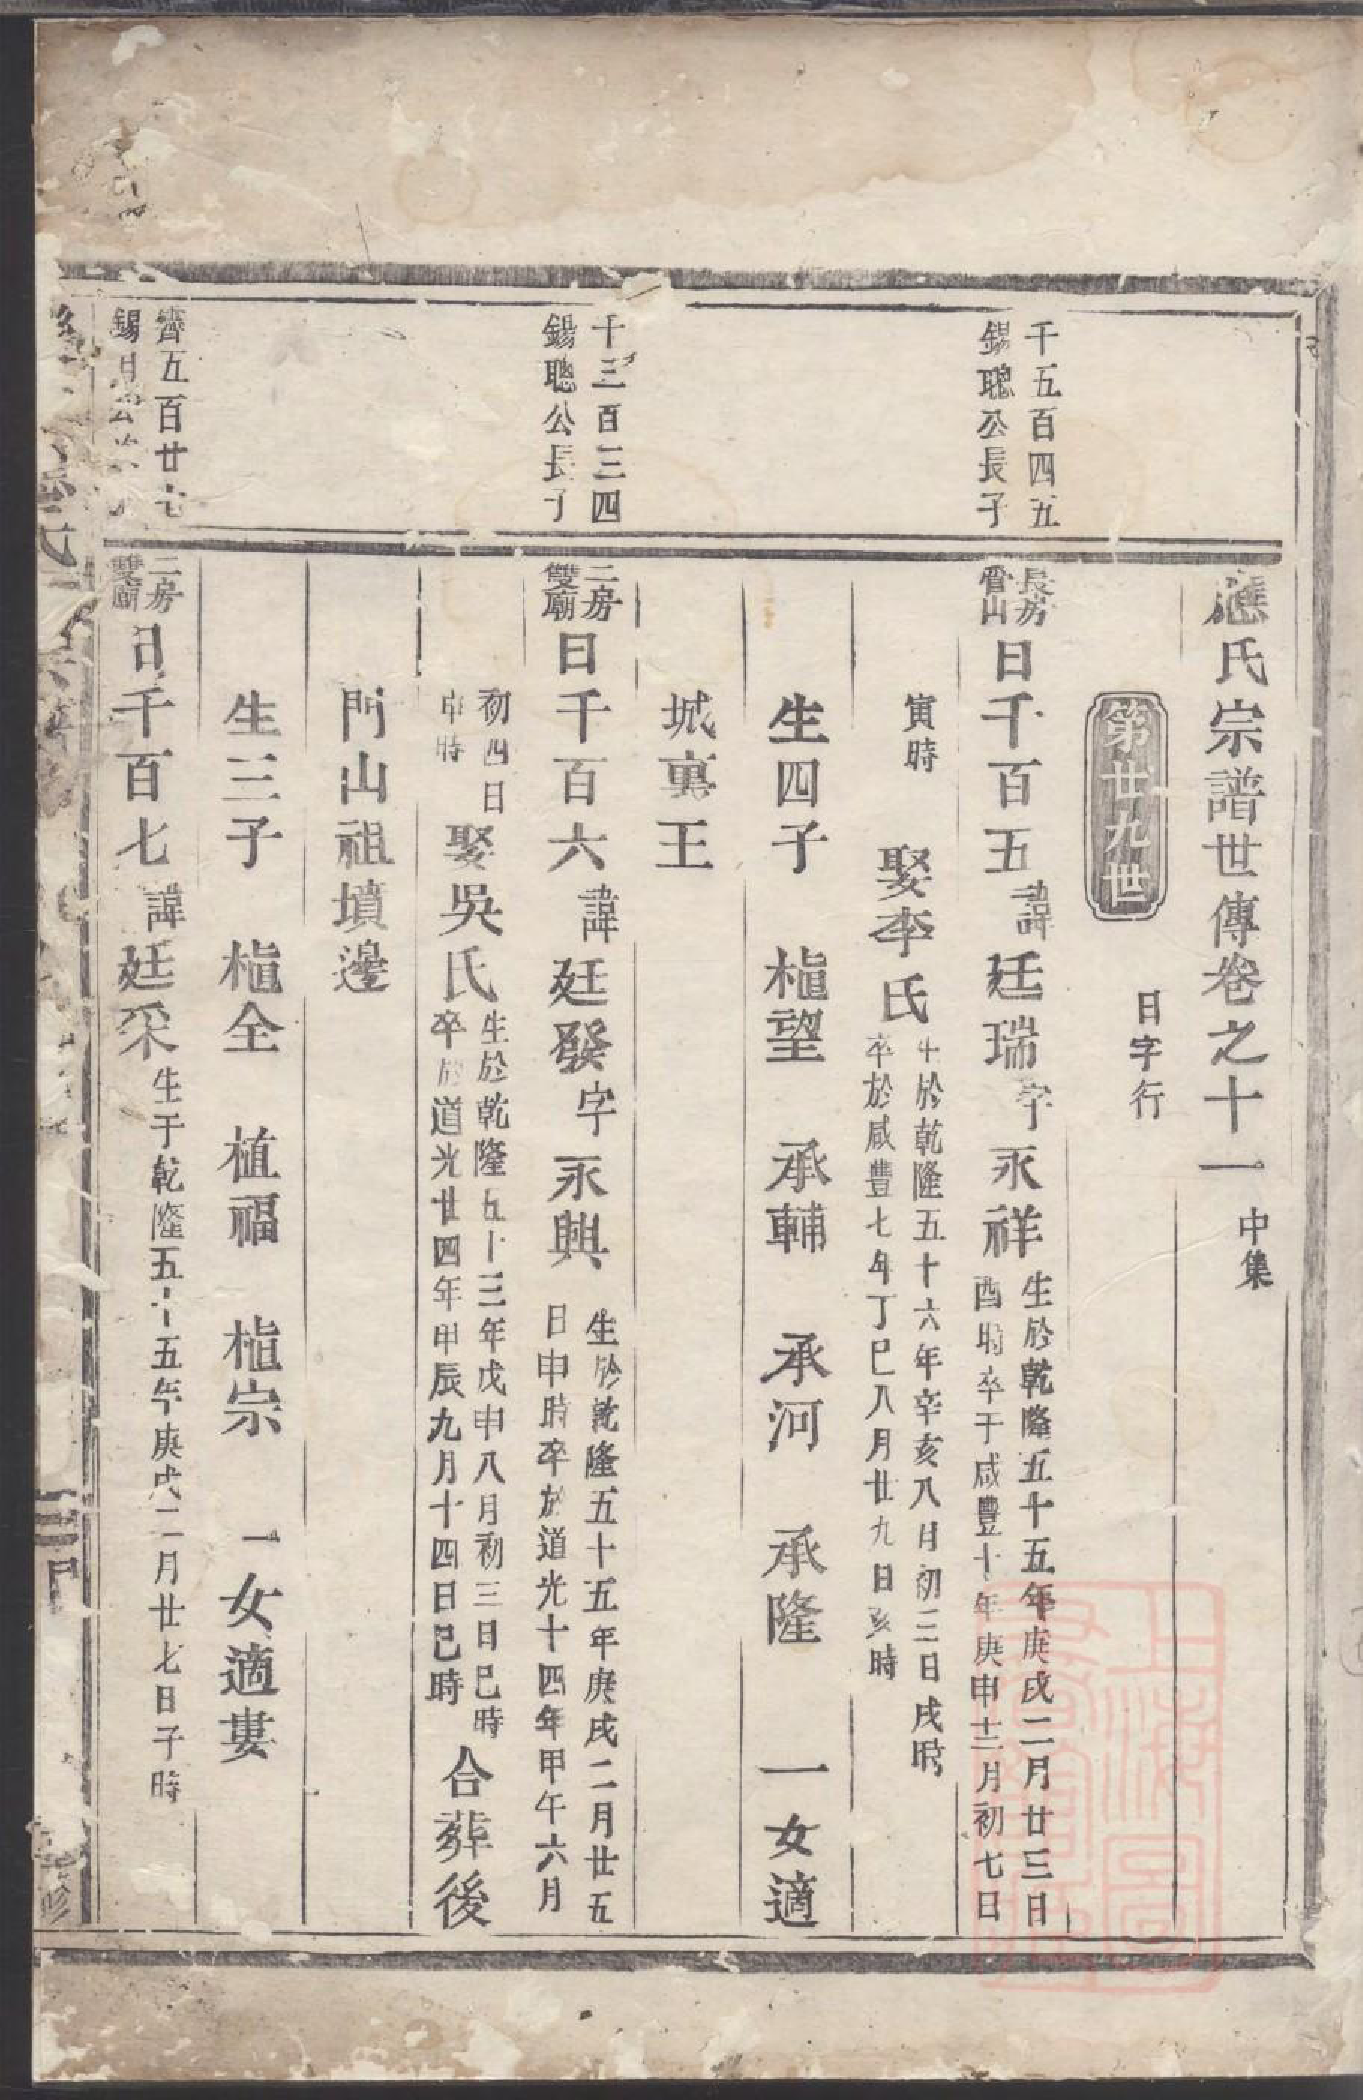 應氏宗譜世傳卷之十一 中集
第廿九世 日字行
千五百四五
錫聰公長子
長房
管山
日千百五 諱廷瑞 字永祥 生於乾隆五十五年庚戌二月廿三日
酉時卒于咸豐十年庚申十二月初七日
寅時 娶李氏 生於乾隆五十六年辛亥八月初三日戌時
卒於咸豐七年丁巳八月廿九日亥時
生四子 植望 承輔 承河 承隆 一女適
城裏王
千三百三四
錫聰公長子
二房
雙廟
日千百六 諱廷發 字永興 生於乾隆五十五年庚戌二月廿五
日申時卒於道光十四年甲午六月
初四日
申時
娶吳氏 生於乾隆五十三年戊申八月初三日巳時
卒於道光廿四年甲辰九月十四日巳時
合葬後
門山祖墳邊
生三子 植全 植福 植宗 一女適婁
齊五百廿七
錫
二房
雙廟
日千百七 諱廷采 生于乾隆五十五年庚戌二月廿七日子時
上海圖書館藏